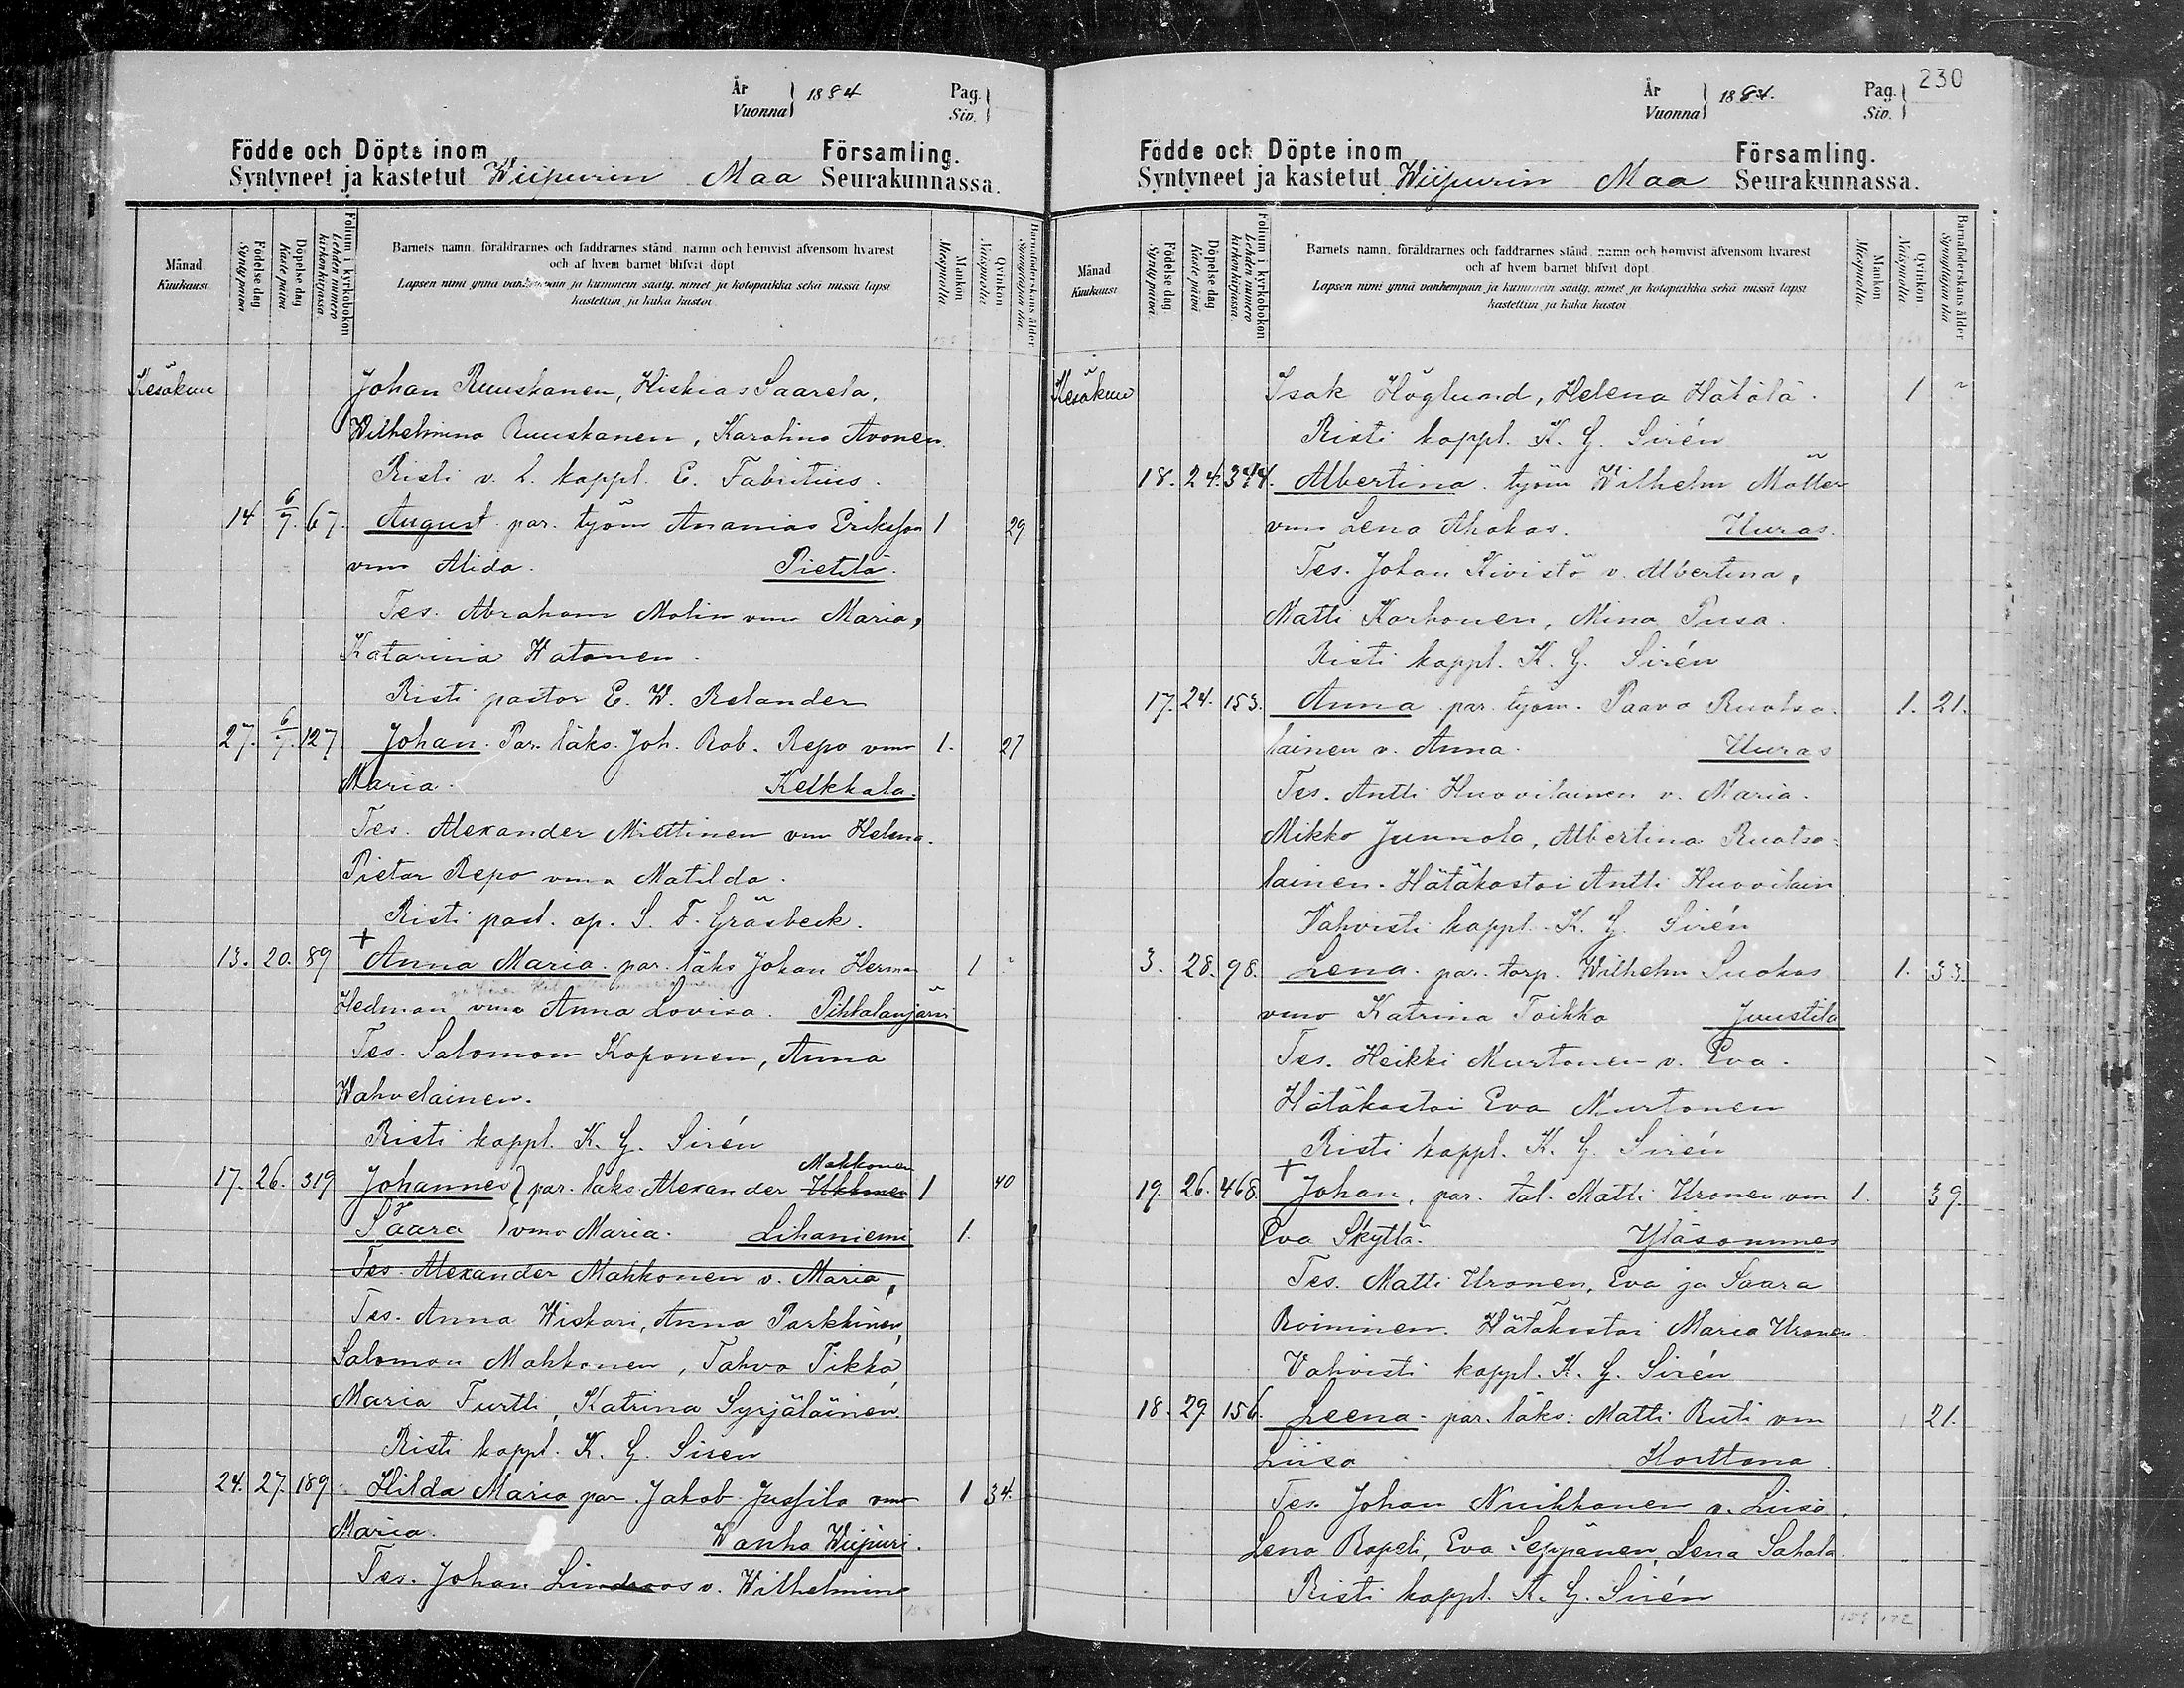 År
Vuonna } 1884 Pag.
Siv. }
Födde och Döpte inom Församling.
Syntyneet ja kastetut Wiipurin Maa Seurakunnassa.
Månad
Kuukausi
Födelse dag
Synty päivä
Döpelse dag
Kaste päivä
Folium i kyrkoboken
Lehden numero
kirkonkirjassa.
Barnets namn, föräldrarnes och faddrarnes stånd, namn och hemvist äfvensom hvarest
och af hvem barnet blifvit döpt
Lapsen nimi ynnä vanhempain ja kummein sääty, nimet ja kotopaikka sekä missä lapsi
kastettiin ja kuka kastoi
Mankön
Miespuolia
Qvinkön
Naispuolia
Barnaföderskans ålder
Synnyttäjän ikä
Kesäkuu Johan Ruuskanen, Hiskias Saarela,
Wilhelmina Ruuskanen, Karolina Avonen.
Risti v. l. kappl. E. Fabritius.
14 6/7. 67. August par. työm Ananias Eriksson 1 29.
vmo Alida. Pietilä.
Tes. Abraham Molin vmo Maria,
Katarina Watanen.
Risti pastor E. W. Relander
27. 6/7. 127. Johan. Par. läks. Joh. Rob. Repo vmo 1. 27
Maria. Kelkkala.
Tes. Alexander Miettinen vmo Helena.
Pietar Repo vmo Matilda.
Risti past. ap. S. F. Gräsbeck.
13. 20. 89 + Anna Maria. par. läks Johan Herman 1 -
Hedman vmo Anna Lovisa. Pihkalanjärvi
Tes. Salomon Koponen, Anna
Wahvelainen.
Risti kappl. K. G. Sirén
Makkonen
17. 26. 319 Johannes } par. läks Alexander Ukkonen 1 40
ja
Saara } vmo Maria. Lihaniemi 1.
Tes. Alexander Mahkonen v. Maria,
Tes. Anna Wiskari, Anna Parkkinen,
Salomon Mahkonen, Tahvo Tikka,
Maria Furtti, Katrina Syrjäläinen.
Risti kappl. K. G. Siren
24. 27. 189 Hilda Maria par. Jakob Jussila vmo 1 34.
Maria. Wanha Wiipuri.
Tes. Johan Lindroos v. Wilhelmina
230
År
Vuonna } 1884. Pag.
Siv. }
Födde och Döpte inom Församling.
Syntyneet ja kastetut Wiipurin Maa Seurakunnassa.
Månad
Kuukausi
Födelse dag
Synty päivä
Döpelse dag
Kaste päivä
Folium i kyrkoboken
Lehden numero
kirkonkirjassa.
Barnets namn, föräldrarnes och faddrarnes stånd, namn och hemvist äfvensom hvarest
och af hvem barnet blifvit döpt
Lapsen nimi ynnä vanhempain ja kummein sääty, nimet ja kotopaikka sekä missä lapsi
kastettiin ja kuka kastoi
Mankön
Miespuolia
Qvinkön
Naispuolia
Barnaföderskans ålder
Synnyttäjän ikä
Kesäkuu Isak Höglund, Helena Hätälä. 1 ~
Risti kappl. K. G. Sirén
18. 24. 344. Albertina. työm Wilhelm Möller
vmo Lena Ahokas. Uuras.
Tes. Johan Kivistö v. Albertina,
Matti Korhonen, Mina Pusa.
Risti kappl. K. G. Sirén
17. 24. 153. Anna par. työm. Paavo Ruotsa- 1. 21.
lainen v. Anna. Uuras
Tes. Antti Huovilainen v. Maria.
Mikko Junnola, Albertina Ruotsa-
lainen. Hätäkastoi Antti Huovilain.
Vahvisti kappl. K. G. Sirén
3. 28. 98. Lena. par. torp. Wilhelm Suokas 1. 33.
vmo Katrina Toikka Juustila
Tes. Heikki Murtonen v. Eva.
Hätäkastoi Eva Murtonen
Risti kappl. K. G. Sirén
19. 26. 468. + Johan, par. tal. Matti Uronen vm 1. 39.
Eva Skyttä. Yläsommee
Tes. Matti Uronen, Eva ja Saara
Roininen. Hätäkastoi Maria Uronen.
Vahvisti kappl. K. G. Sirén
18. 29. 156. Leena. par. läks: Matti Ruti vm 21.
Liisa Horttana
Tes. Johan Nuikkanen v. Liisa.
Lena Rapeli, Eva Seppänen, Lena Sahala.
Risti kappl. K. G. Sirén
159 172